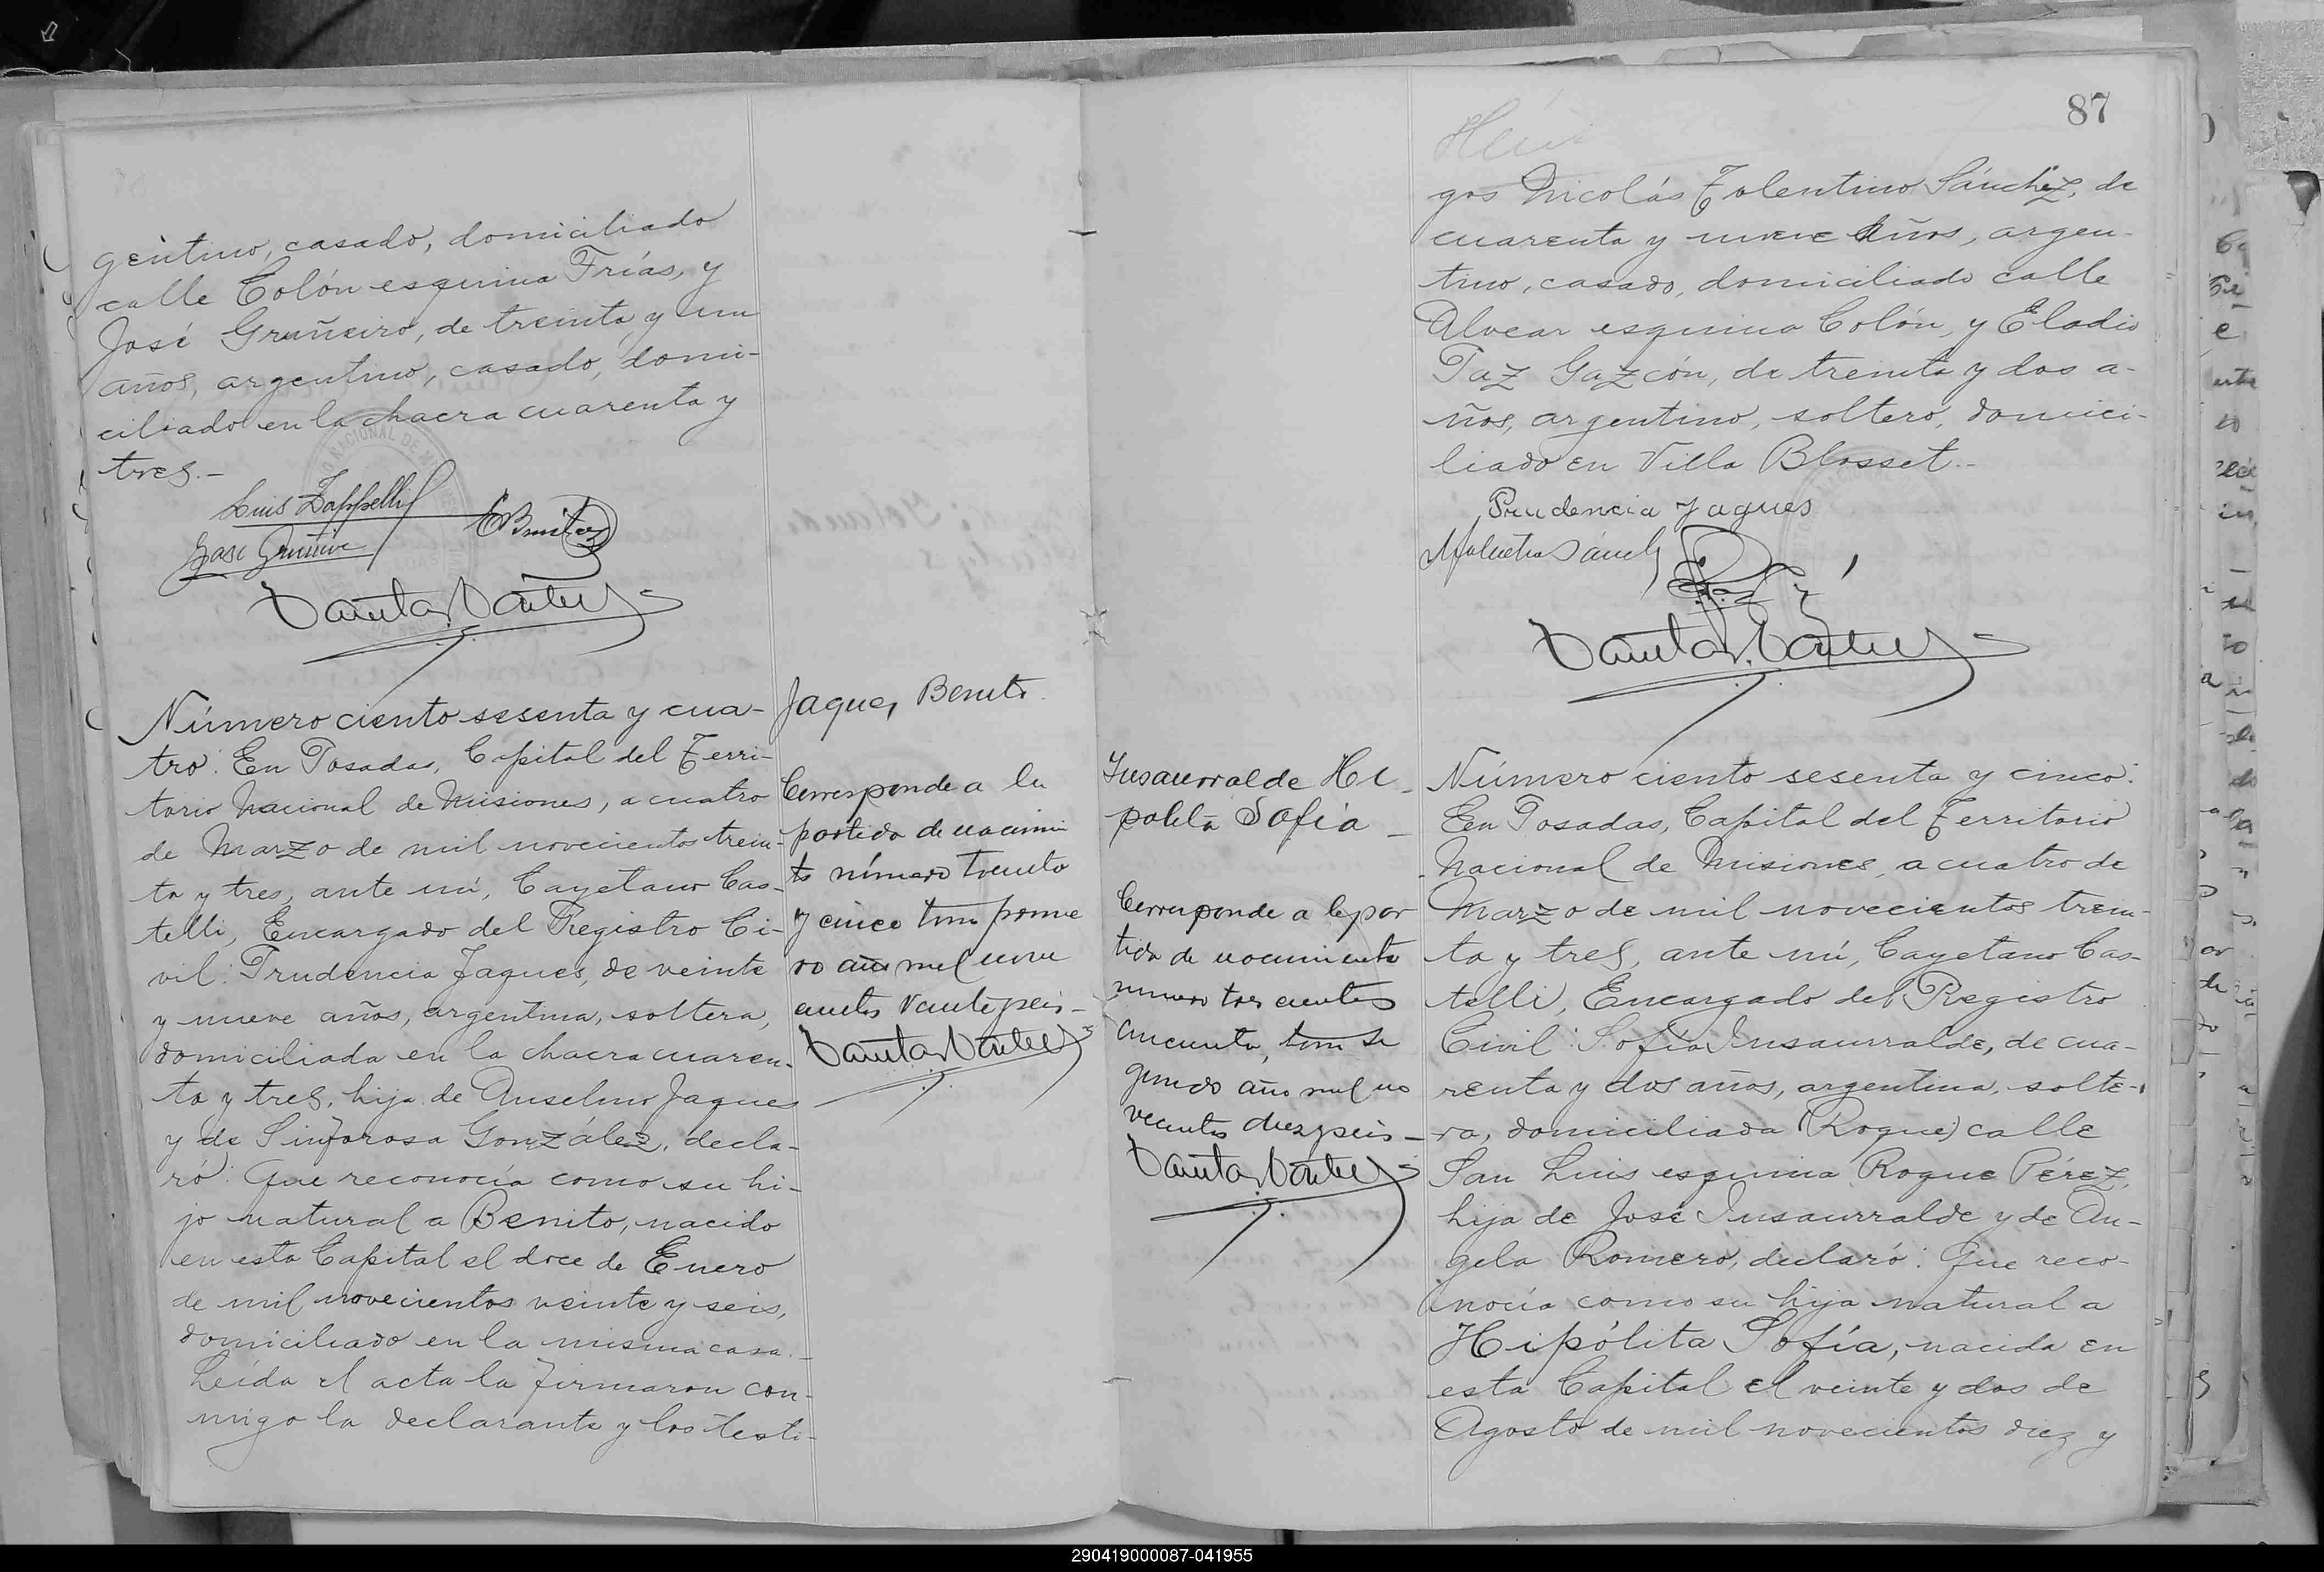 gentino, casado, domiciliado
calle Colón esquina Frías, y
José Gruñeiro, de treinta y un
años, argentino, casado, domi-
ciliado en la chacra cuarenta y
tres.-
Luis Zappelli
EBenitez
José Gruñeiro
Número ciento sesenta y cua-
tro: En Posadas, Capital del Terri-
torio Nacional de Misiones, a cuatro
de Marzo de mil novecientos trein-
ta y tres, ante mí, Cayetano Cas-
telli, Encargado del Registro Ci-
vil: Prudencia Jaques, de veinte
y nueve años, argentina, soltera,
domiciliada en la chacra cuaren-
ta y tres, hija de Anselmo Jaques
y de Sinforosa González, decla-
ró: Que reconocía como su hi-
jo natural a Benito, nacido
en esta Capital el doce de Enero
de mil novecientos veinte y seis,
domiciliado en la misma casa.-
Leída el acta la firmaron con-
migo la declarante y los testi-
Jaques, Benito
Corresponde a la
partida de nacimien
to número treinta
y cinco tomo prime
ro año mil nove
cientos veinteyseis-
87
gos Nicolás Tolentino Sánchez, de
cuarenta y nueve años, argen-
tino, casado, domiciliado calle
Alvear esquina Colón, y Eladio
Paz Gazcón, de treinta y dos a-
ños, argentino, soltero, domici-
liado en Villa Blosset.-
Prudencia Jaques
Insaurralde Hi-
polita Sofía -
Corresponde a la par
tida de nacimiento
numero tres cientos
cincuenta, tomo se
gundo año mil no
vecientos diezyseis-
Número ciento sesenta y cinco:
En Posadas, Capital del Territorio
Nacional de Misiones, a cuatro de
Marzo de mil novecientos trein-
ta y tres, ante mí, Cayetano Cas-
telli, Encargado del Registro
Civil: Sofía Insaurralde, de cua-
renta y dos años, argentina, solte-
ra, domiciliada (Roque) calle
San Luis esquina Roque Pérez,
hija de José Insaurralde y de An-
gela Romero, declaró: Que reco-
nocía como su hija natural a
Hipólita Sofía, nacida en
esta Capital el veinte y dos de
Agosto de mil novecientos diez y
290419000087-041955